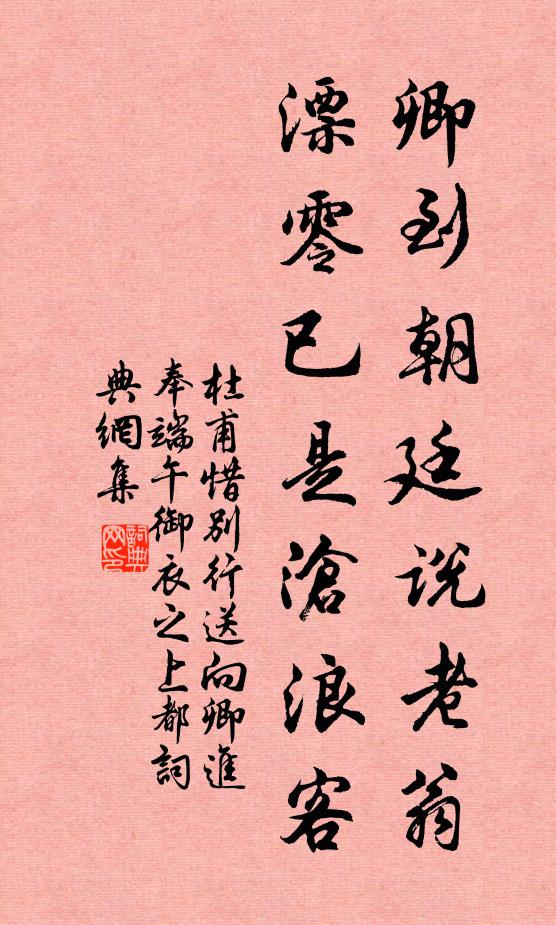 卿到朝廷説老翁
漂零已是滄浪客
杜甫惜別行送向卿進
奉端午御衣之上都詞
典網集
詞典
网印